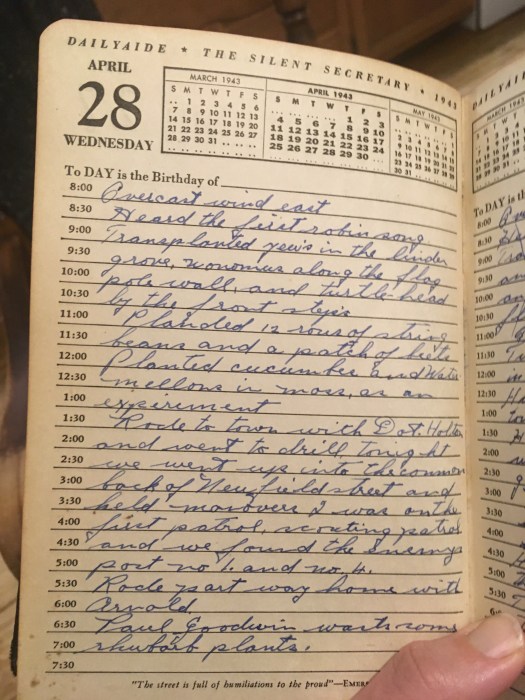 DAILYAIDE * THE SILENT SECRETARY * 1943
APRIL
28
WEDNESDAY
MARCH 1943
S M T W T F S
.. 1 2 3 4 5 6
7 8 9 10 11 12 13
14 15 16 17 18 19 20
21 22 23 24 25 26 27
28 29 30 31 .. .. ..
APRIL 1943
S M T W T F S
1 2 3
4 5 6 7 8 9 10
11 12 13 14 15 16 17
18 19 20 21 22 23 24
25 26 27 28 29 30 ..
MAY 1943
S M T W T F S
To DAY is the Birthday of
8:00 Overcast wind east
8:30 Heard the first robin song
9:00 Transplanted yews in the linden
9:30 grove, euonomus along the flag
10:00 pole wall, and turtle-head
10:30 by the front steps
11:00 Planded 12 rows of string
11:30 beans and a patch of beets
12:00 Planted cucumber and Water
12:30 mellons in moss, as an
1:00 expieriment
1:30 Rode to town with Dot. Holton
2:00 and went to drill tonight
2:30 we went up into the common
3:00 back of Newfield street and
3:30 held manovers I was on the
4:00 first patrol, scouting patrol
4:30 and we found the Enemys
5:00 post no 1. and no. 4.
5:30 Rode part way home with
6:00 Arnold.
6:30 Paul Goodwin wants some
7:00 rhubarb plants.
7:30
"The street is full of humiliations to the proud"—EMER
DAILYAI
MARCH 1943
To DAY is th
8:00
8:30
9:00
9:30
10:00
10:30
11:00
11:30
12:00
12:30
1:00
1:30
2:00
2:30
3:00
3:30
4:00
4:30
5:00
5:30